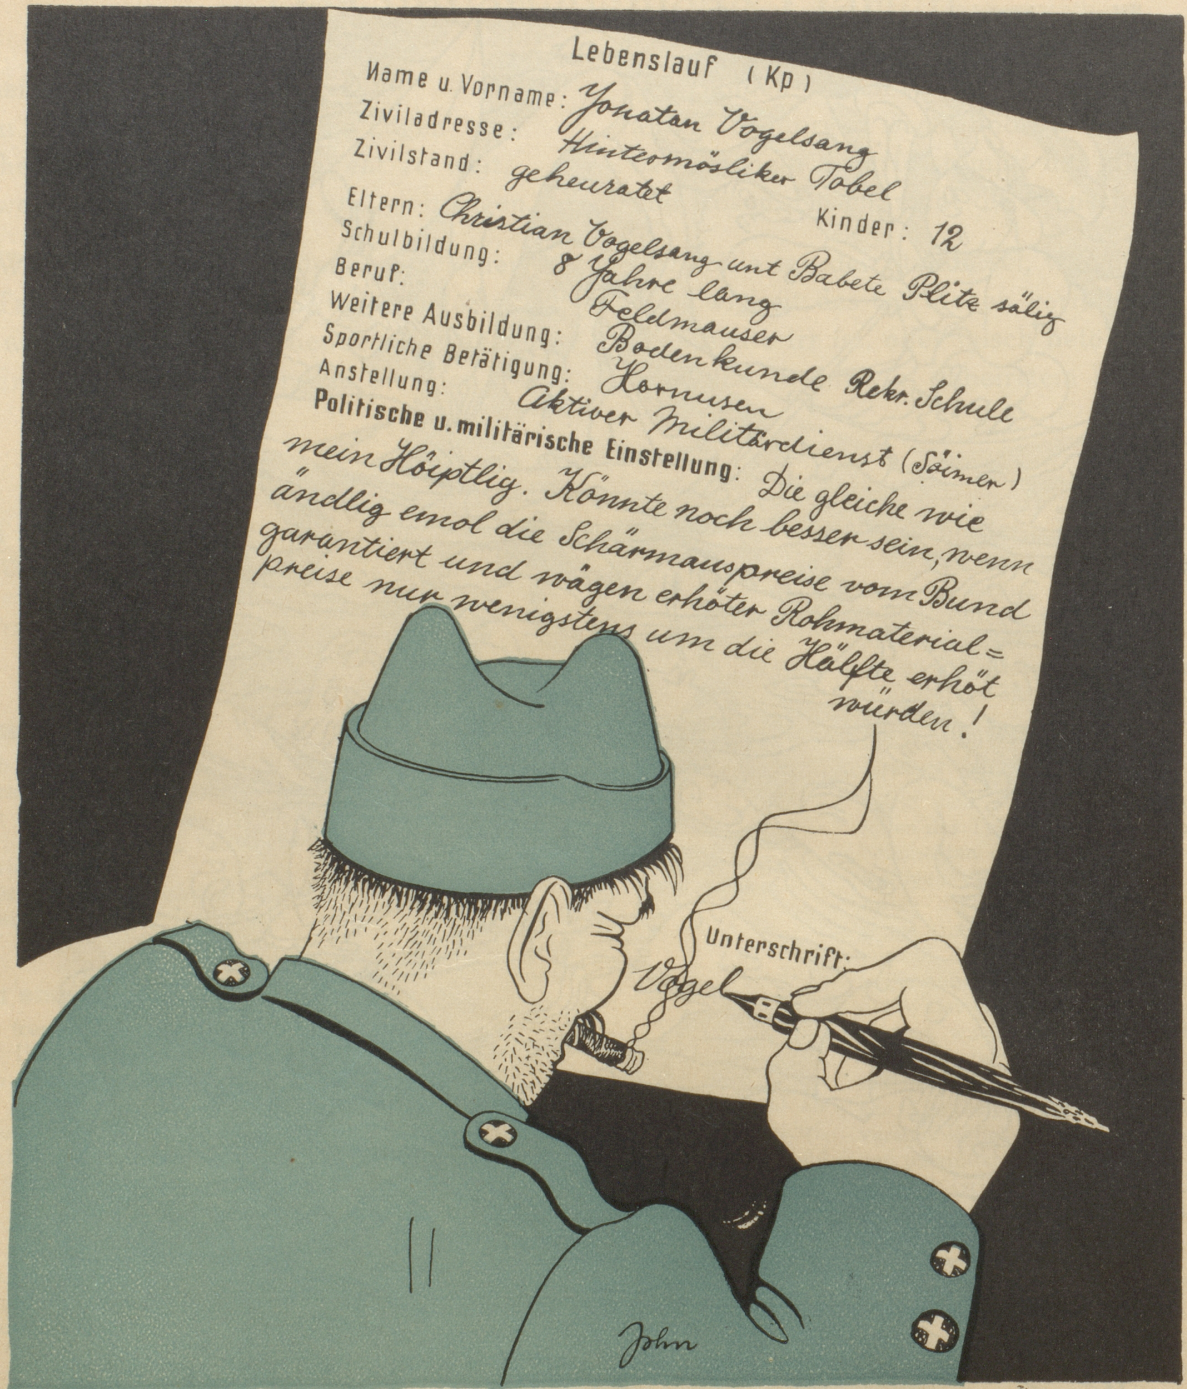 Lebenslauf (Kp)
Name u. Vorname: Jonatan Vogelsang
Ziviladresse: Hintermösliker Tobel
Zivilstand: geheuratet Kinder: 12
Eltern: Christian Vogelsang unt Babete Plitz sälig
Schulbildung: 8 Jahre lang
Beruf: Feldmauser
Weitere Ausbildung: Bodenkunde Rekr. Schule
Sportliche Betätigung: Hornusen
Anstellung: Aktiver Militärdienst (Söimer)
Politische u. militärische Einstellung: Die gleiche wie
mein Höiptlig. Könnte noch besser sein, wenn
ändlig emol die Schärmauspreise vom Bund
garantiert und wägen erhöter Rohmaterial=
preise nur wenigstens um die Hälfte erhöt
würden!
Unterschrift:
Vogel
John